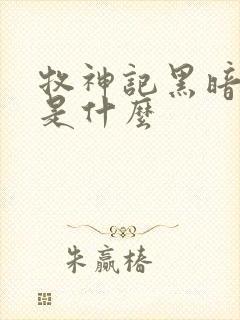 牧神記黑暗
是什麼
朱贏椿